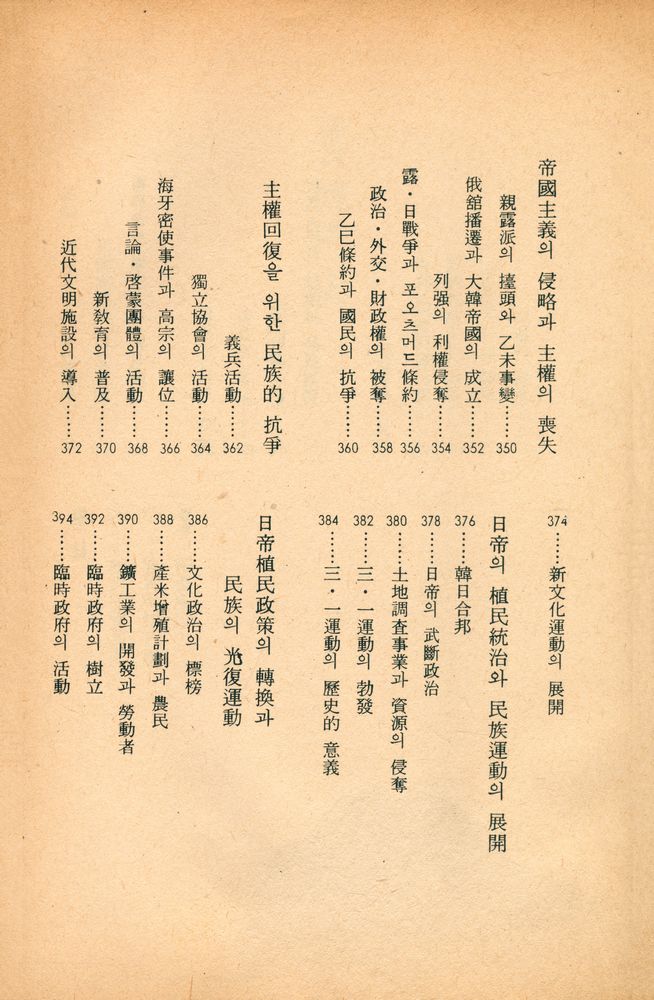 帝國主義의 侵略과 主權의 喪失
親露派의 擡頭와 乙未事變……350
俄舘播遷과 大韓帝國의 成立……352
列强의 利權侵奪……354
露・日戰爭과 포오츠머드條約……356
政治・外交・財政權의 被奪……358
乙巳條約과 國民의 抗爭……360
主權回復을 위한 民族的 抗爭
義兵活動……362
獨立協會의 活動……364
海牙密使事件과 高宗의 讓位……366
言論・啓蒙團體의 活動……368
新敎育의 普及……370
近代文明施設의 導入……372
374……新文化運動의 展開
日帝의 植民統治와 民族運動의 展開
376……韓日合邦
378……日帝의 武斷政治
380……土地調査事業과 資源의 侵奪
382……三・一運動의 勃發
384……三・一運動의 歷史的 意義
日帝植民政策의 轉換과
民族의 光復運動
386……文化政治의 標榜
388……產米增殖計劃과 農民
390……鑛工業의 開發과 勞動者
392……臨時政府의 樹立
394……臨時政府의 活動